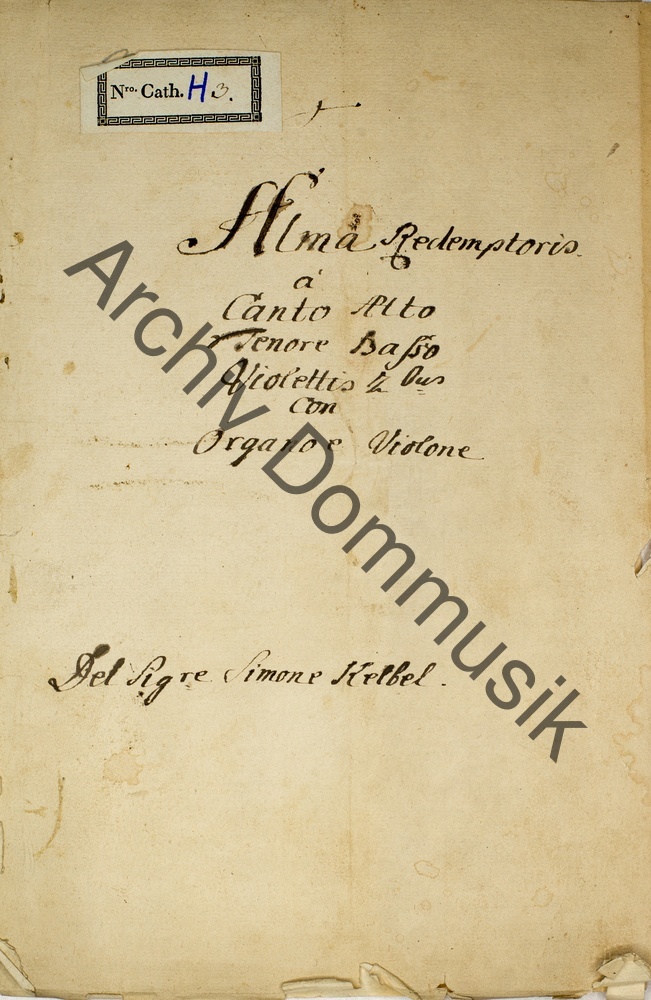 Nro. Cath. H 3.
Alma Redemptoris
à
Canto Alto
Tenore Basso
Violettis 2 bus
Con
Organo e Violone
Del Sigre Simone Kelbel.
Archiv Dommusik